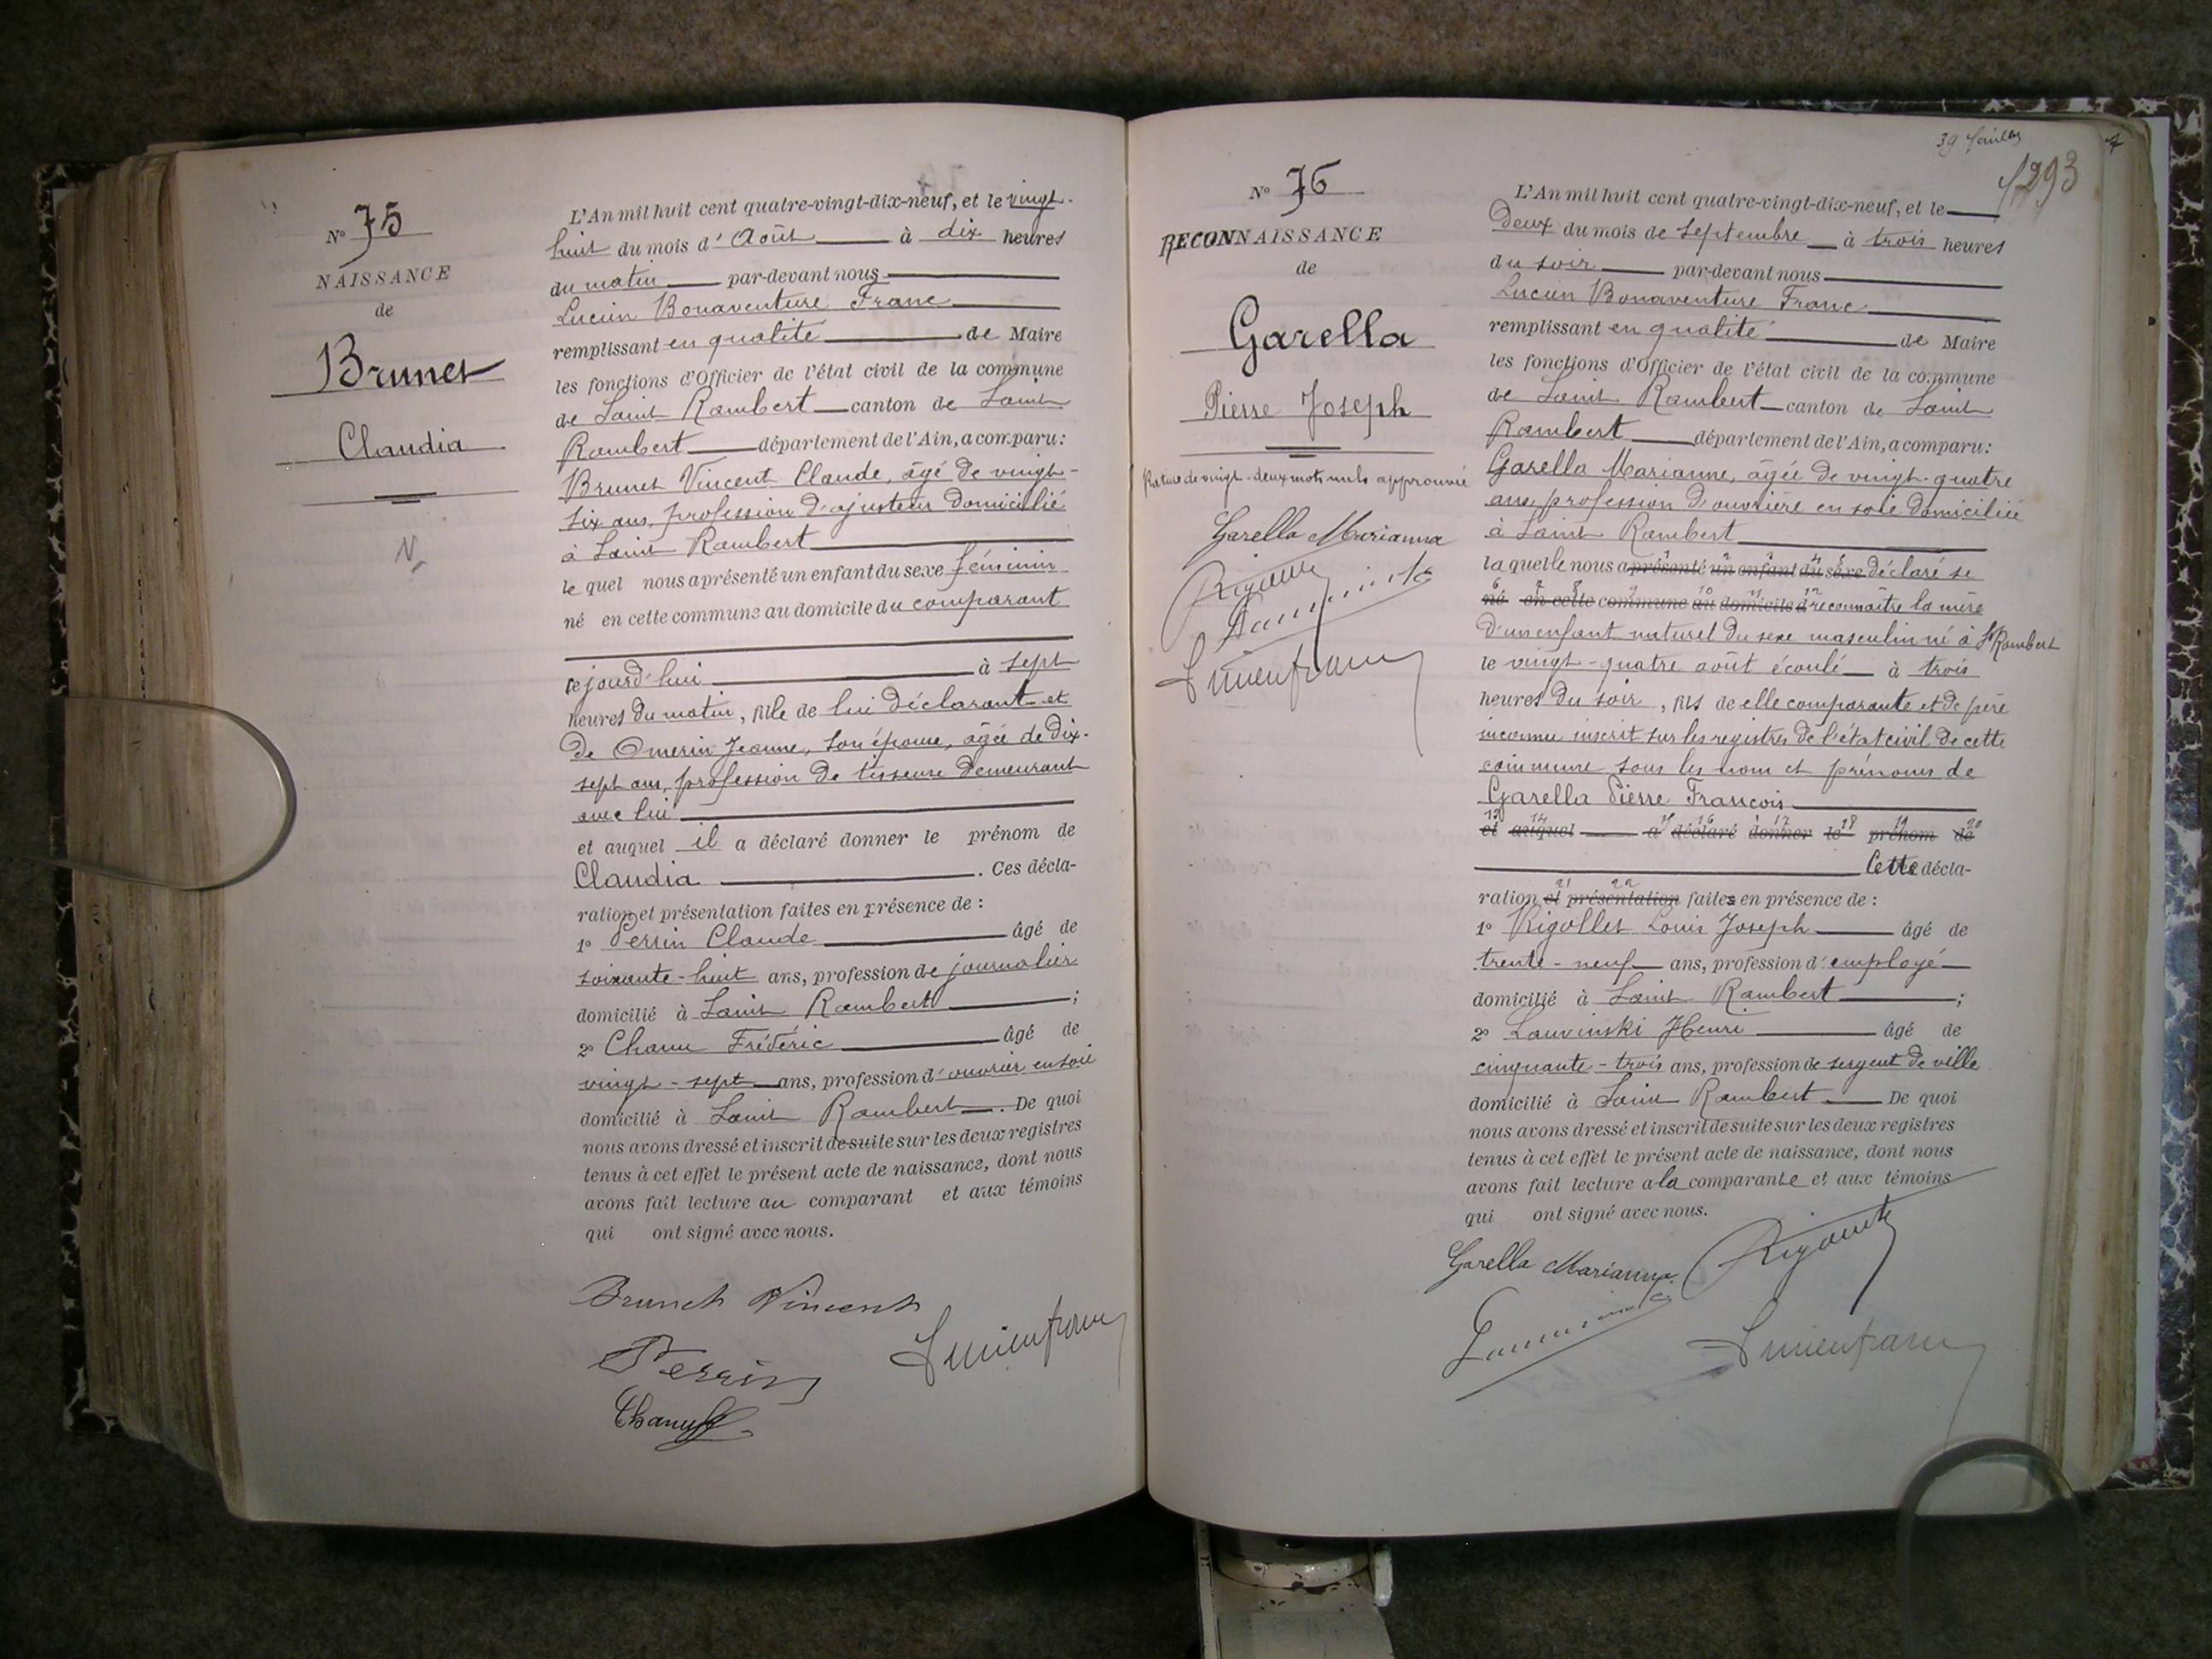 No 75
NAISSANCE
de
Brunet
Claudia
N
L'An mil huit cent quatre-vingt-dix-neuf, et le vingt-
huit du mois d'Août à dix heures
du matin par-devant nous
Lucien Bonaventure Franc
remplissant en qualité de Maire
les fonctions d'Officier de l'état civil de la commune
de Saint Rambert canton de Saint
Rambert département de l'Ain, a comparu:
Brunet Vincent Claude, âgé de vingt-
six ans, profession d'ajusteur domicilié
à Saint Rambert
le quel nous a présenté un enfant du sexe féminin
né en cette commune au domicile du comparant
ce jourd'hui à sept
heures du matin, fille de lui déclarant et
de Omerin Jeanne, son épouse, âgée de dix-
sept ans, profession de tisseuse demeurant
avec lui
et auquel il a déclaré donner le prénom de
Claudia . Ces décla-
ration et présentation faites en présence de :
1o Perrin Claude âgé de
soixante-huit ans, profession de journalier
domicilié à Saint Rambert ;
2o Chanu Frédéric âgé de
vingt-sept ans, profession d'ouvrier en soie
domicilié à Saint Rambert . De quoi
nous avons dressé et inscrit de suite sur les deux registres
tenus à cet effet le présent acte de naissance, dont nous
avons fait lecture au comparant et aux témoins
qui ont signé avec nous.
Brunet Vincent
Perrin
Lucien franc
Chanu
39 feuilles
1293
No 76
RECONNAISSANCE
de
Garella
Pierre Joseph
Rature de vingt-deux mots nuls approuvée
Garella Marianna
Lucien franc
L'An mil huit cent quatre-vingt-dix-neuf, et le
Deux du mois de Septembre à trois heures
du soir par-devant nous
Lucien Bonaventure Franc
remplissant en qualité de Maire
les fonctions d'Officier de l'état civil de la commune
de Saint Rambert canton de Saint
Rambert département de l'Ain, a comparu:
Garella Marianne, âgée de vingt-quatre
ans, profession d'ouvrière en soie domiciliée
à Saint Rambert
la quelle nous a présenté un enfant du sexe déclaré se
né en cette commune au domicile d reconnaître la mère
d'un enfant naturel du sexe masculin né à St Rambert
le vingt-quatre août écoulé à trois
heures du soir, fils de elle comparante et de père
inconnu inscrit sur les registres de l'état civil de cette
commune sous les nom et prénoms de
Garella Pierre François
et auquel a déclaré donner le prénom de
Cette décla-
ration et présentation faites en présence de :
1o Rigollet Louis Joseph âgé de
trente-neuf ans, profession d'employé
domicilié à Saint Rambert ;
2o Lauvinski Henri âgé de
cinquante-trois ans, profession de sergent de ville
domicilié à Saint Rambert De quoi
nous avons dressé et inscrit de suite sur les deux registres
tenus à cet effet le présent acte de naissance, dont nous
avons fait lecture a la comparante et aux témoins
qui ont signé avec nous.
Garella Marianna
Lucien franc